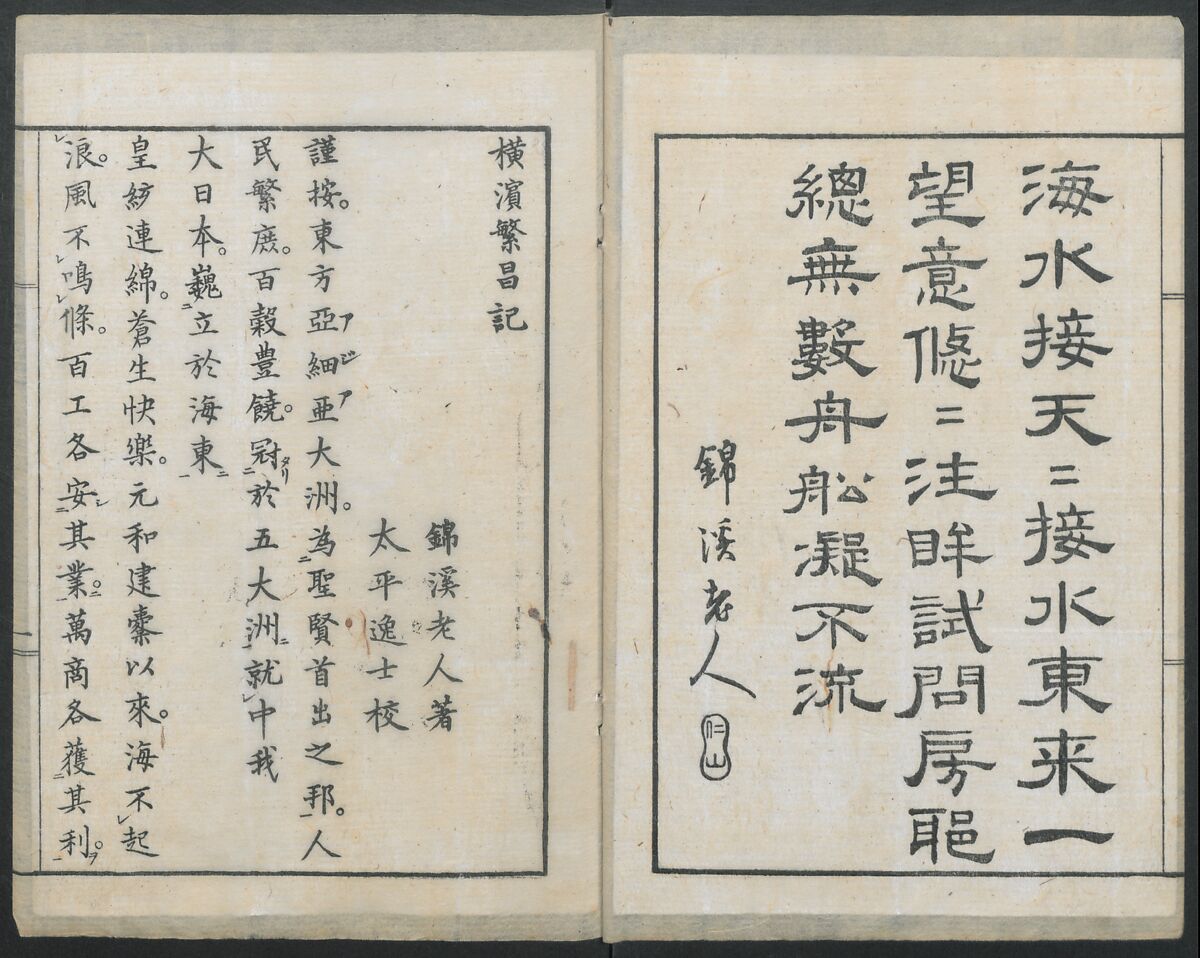 海水接天〻接水東来一
望意悠〻注眸試問房耶
總無數舟船凝不流
錦溪老人
仁山
橫濱繁昌記
錦溪老人著
太平逸士校
謹按。東方亞細亜大洲。為二聖賢首出之邦一。人
アジア
民繁庶。百穀豊饒。冠二タリ於五大洲一ニ就レ中我
大日本。巍二立於海東一ニ
皇紘連綿。蒼生快樂。元和建櫜以來。海不レ起レ
浪。風不レ鳴レ條。百工各安二シ其業一ニ。萬商各獲二其利一ヲ。